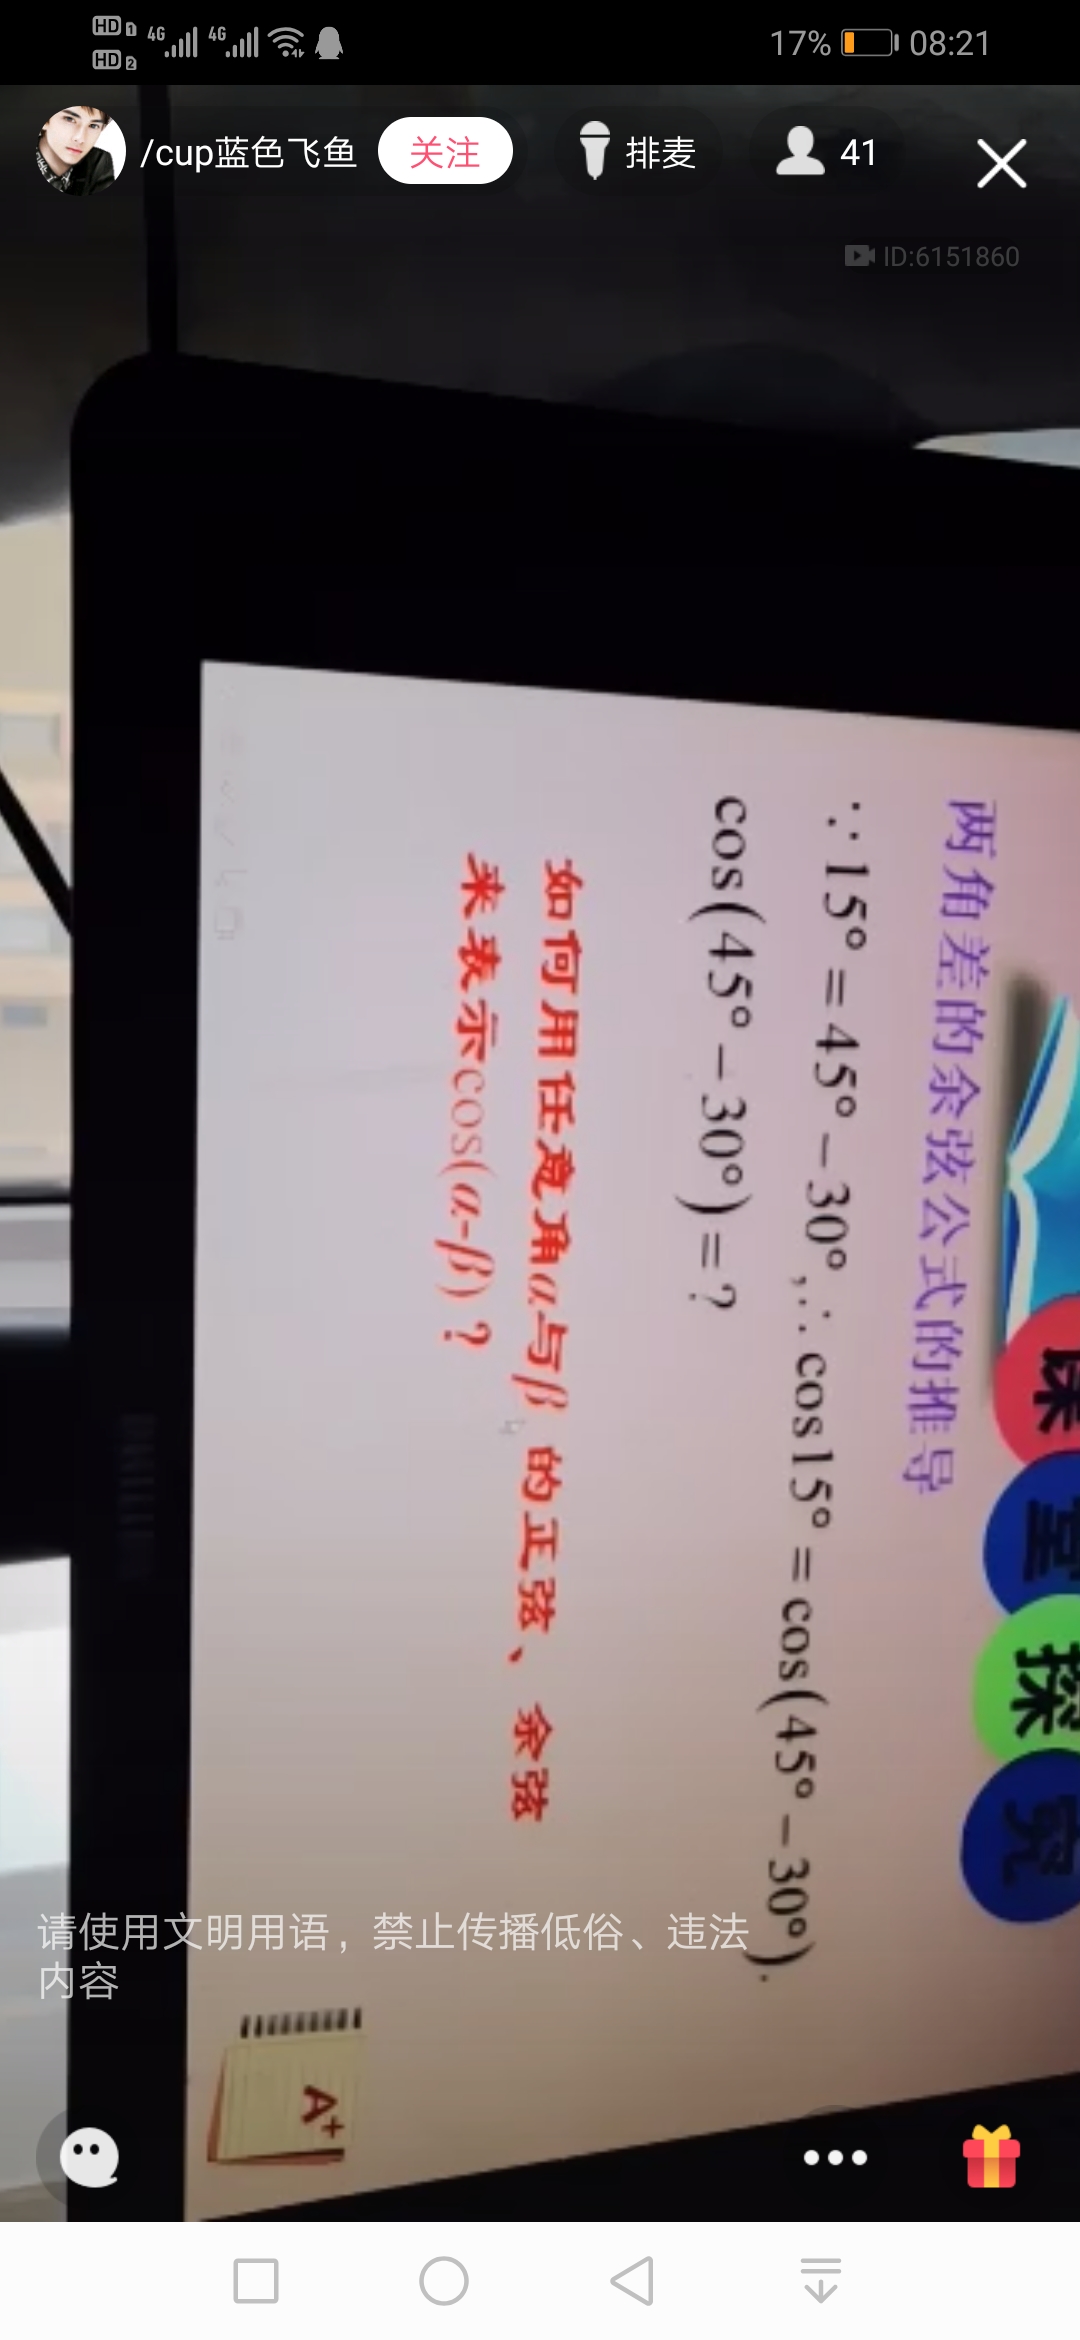 HD 1
HD 2
4G
4G
17%
08:21
/cup蓝色飞鱼
关注
排麦
41
ID:6151860
课堂探究
两角差的余弦公式的推导
∵15°=45°−30°,∴cos15°=cos(45°−30°).
cos(45°−30°)=?
如何用任意角α与β 的正弦、余弦
来表示cos(α-β)?
A+
请使用文明用语，禁止传播低俗、违法
内容